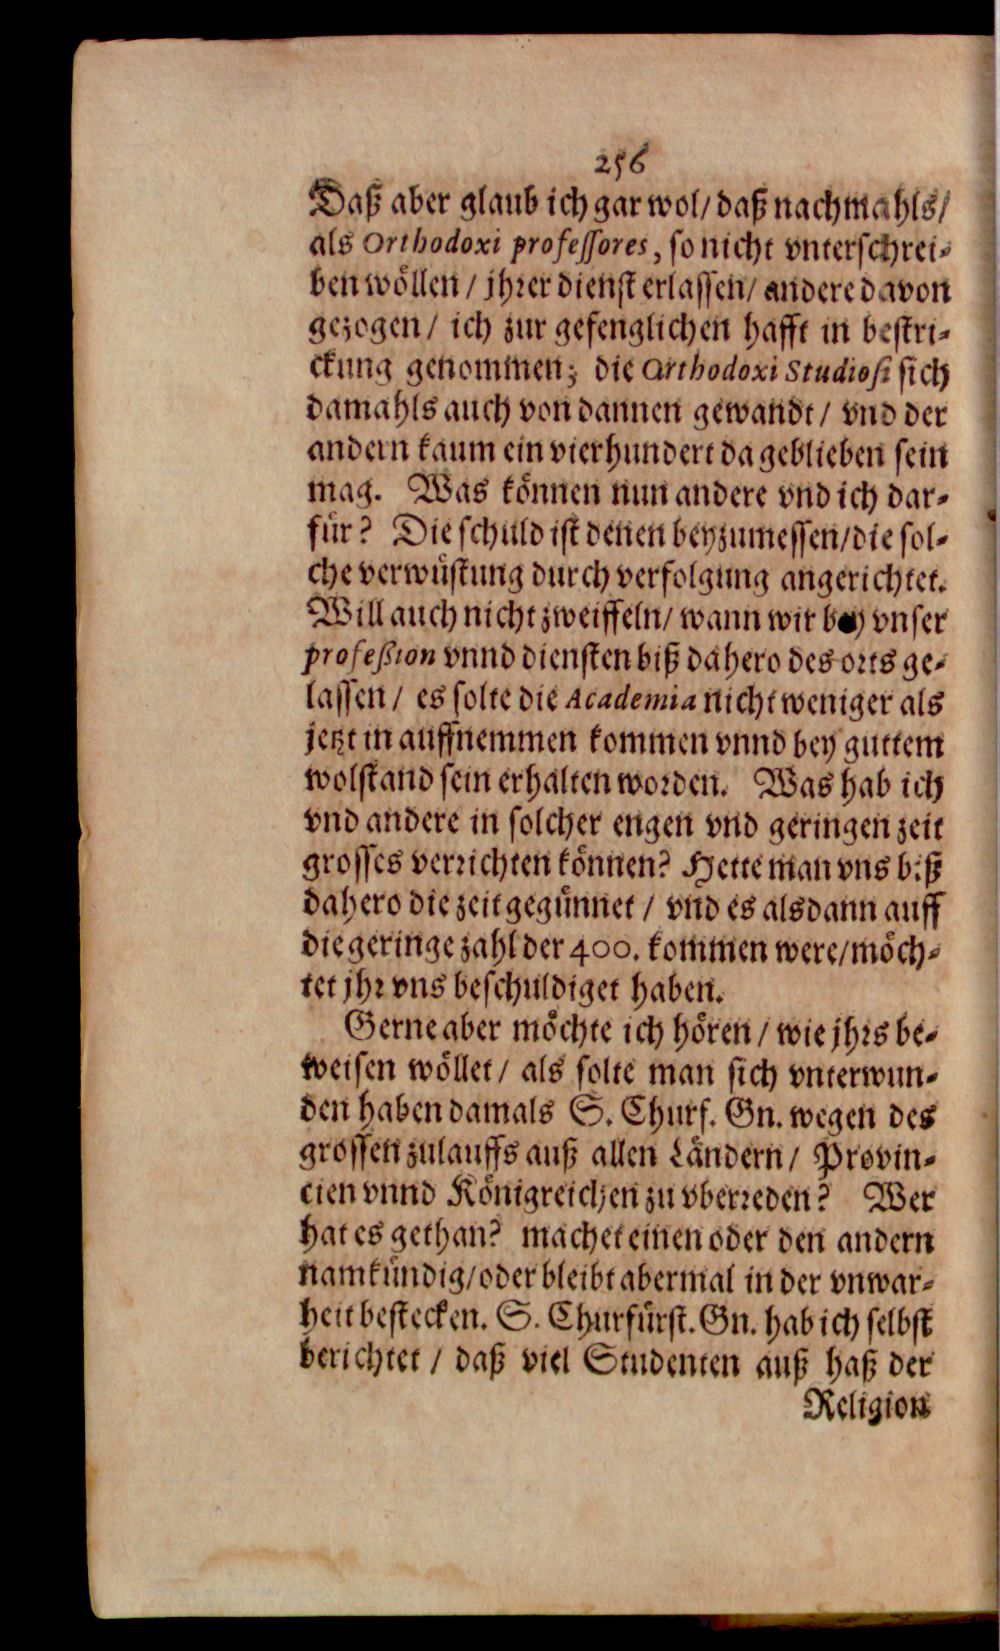 256
Daß aber glaub ich gar wol/ daß nachmahls/
als Orthodoxi professores, so nicht vnterschrei-
ben wöllen / jhrer dienst erlassen/ andere davon
gezogen / ich zur gefenglichen hafft in bestri-
ckung genommen; die Orthodoxi Studiosi sich
damahls auch von dannen gewandt / vnd der
andern kaum ein vierhundert da geblieben sein
mag. Was können nun andere vnd ich dar-
für? Die schuld ist denen beyzumessen/die sol-
che verwüstung durch verfolgung angerichtet.
Will auch nicht zweiffeln/ wann wir bey vnser
profeßion vnnd diensten biß dahero des orts ge-
lassen / es solte die Academia nicht weniger als
jetzt in auffnemmen kommen vnnd bey guttem
wolstand sein erhalten worden. Was hab ich
vnd andere in solcher engen vnd geringen zeit
grosses verrichten können? Hette man vns biß
dahero die zeit gegünnet / vnd es alsdann auff
die geringe zahl der 400. kommen were/möch-
tet jhr vns beschuldiget haben.
Gerne aber möchte ich hören / wie jhrs be-
weisen wöllet / als solte man sich vnterwun-
den haben damals S. Churf. Gn. wegen des
grossen zulauffs auß allen Ländern / Provin-
cien vnnd Königreichen zu vberreden? Wer
hat es gethan? machet einen oder den andern
namkündig/oder bleibt abermal in der vnwar-
heit bestecken. S. Churfürst. Gn. hab ich selbst
berichtet / daß viel Studenten auß haß der
Religion